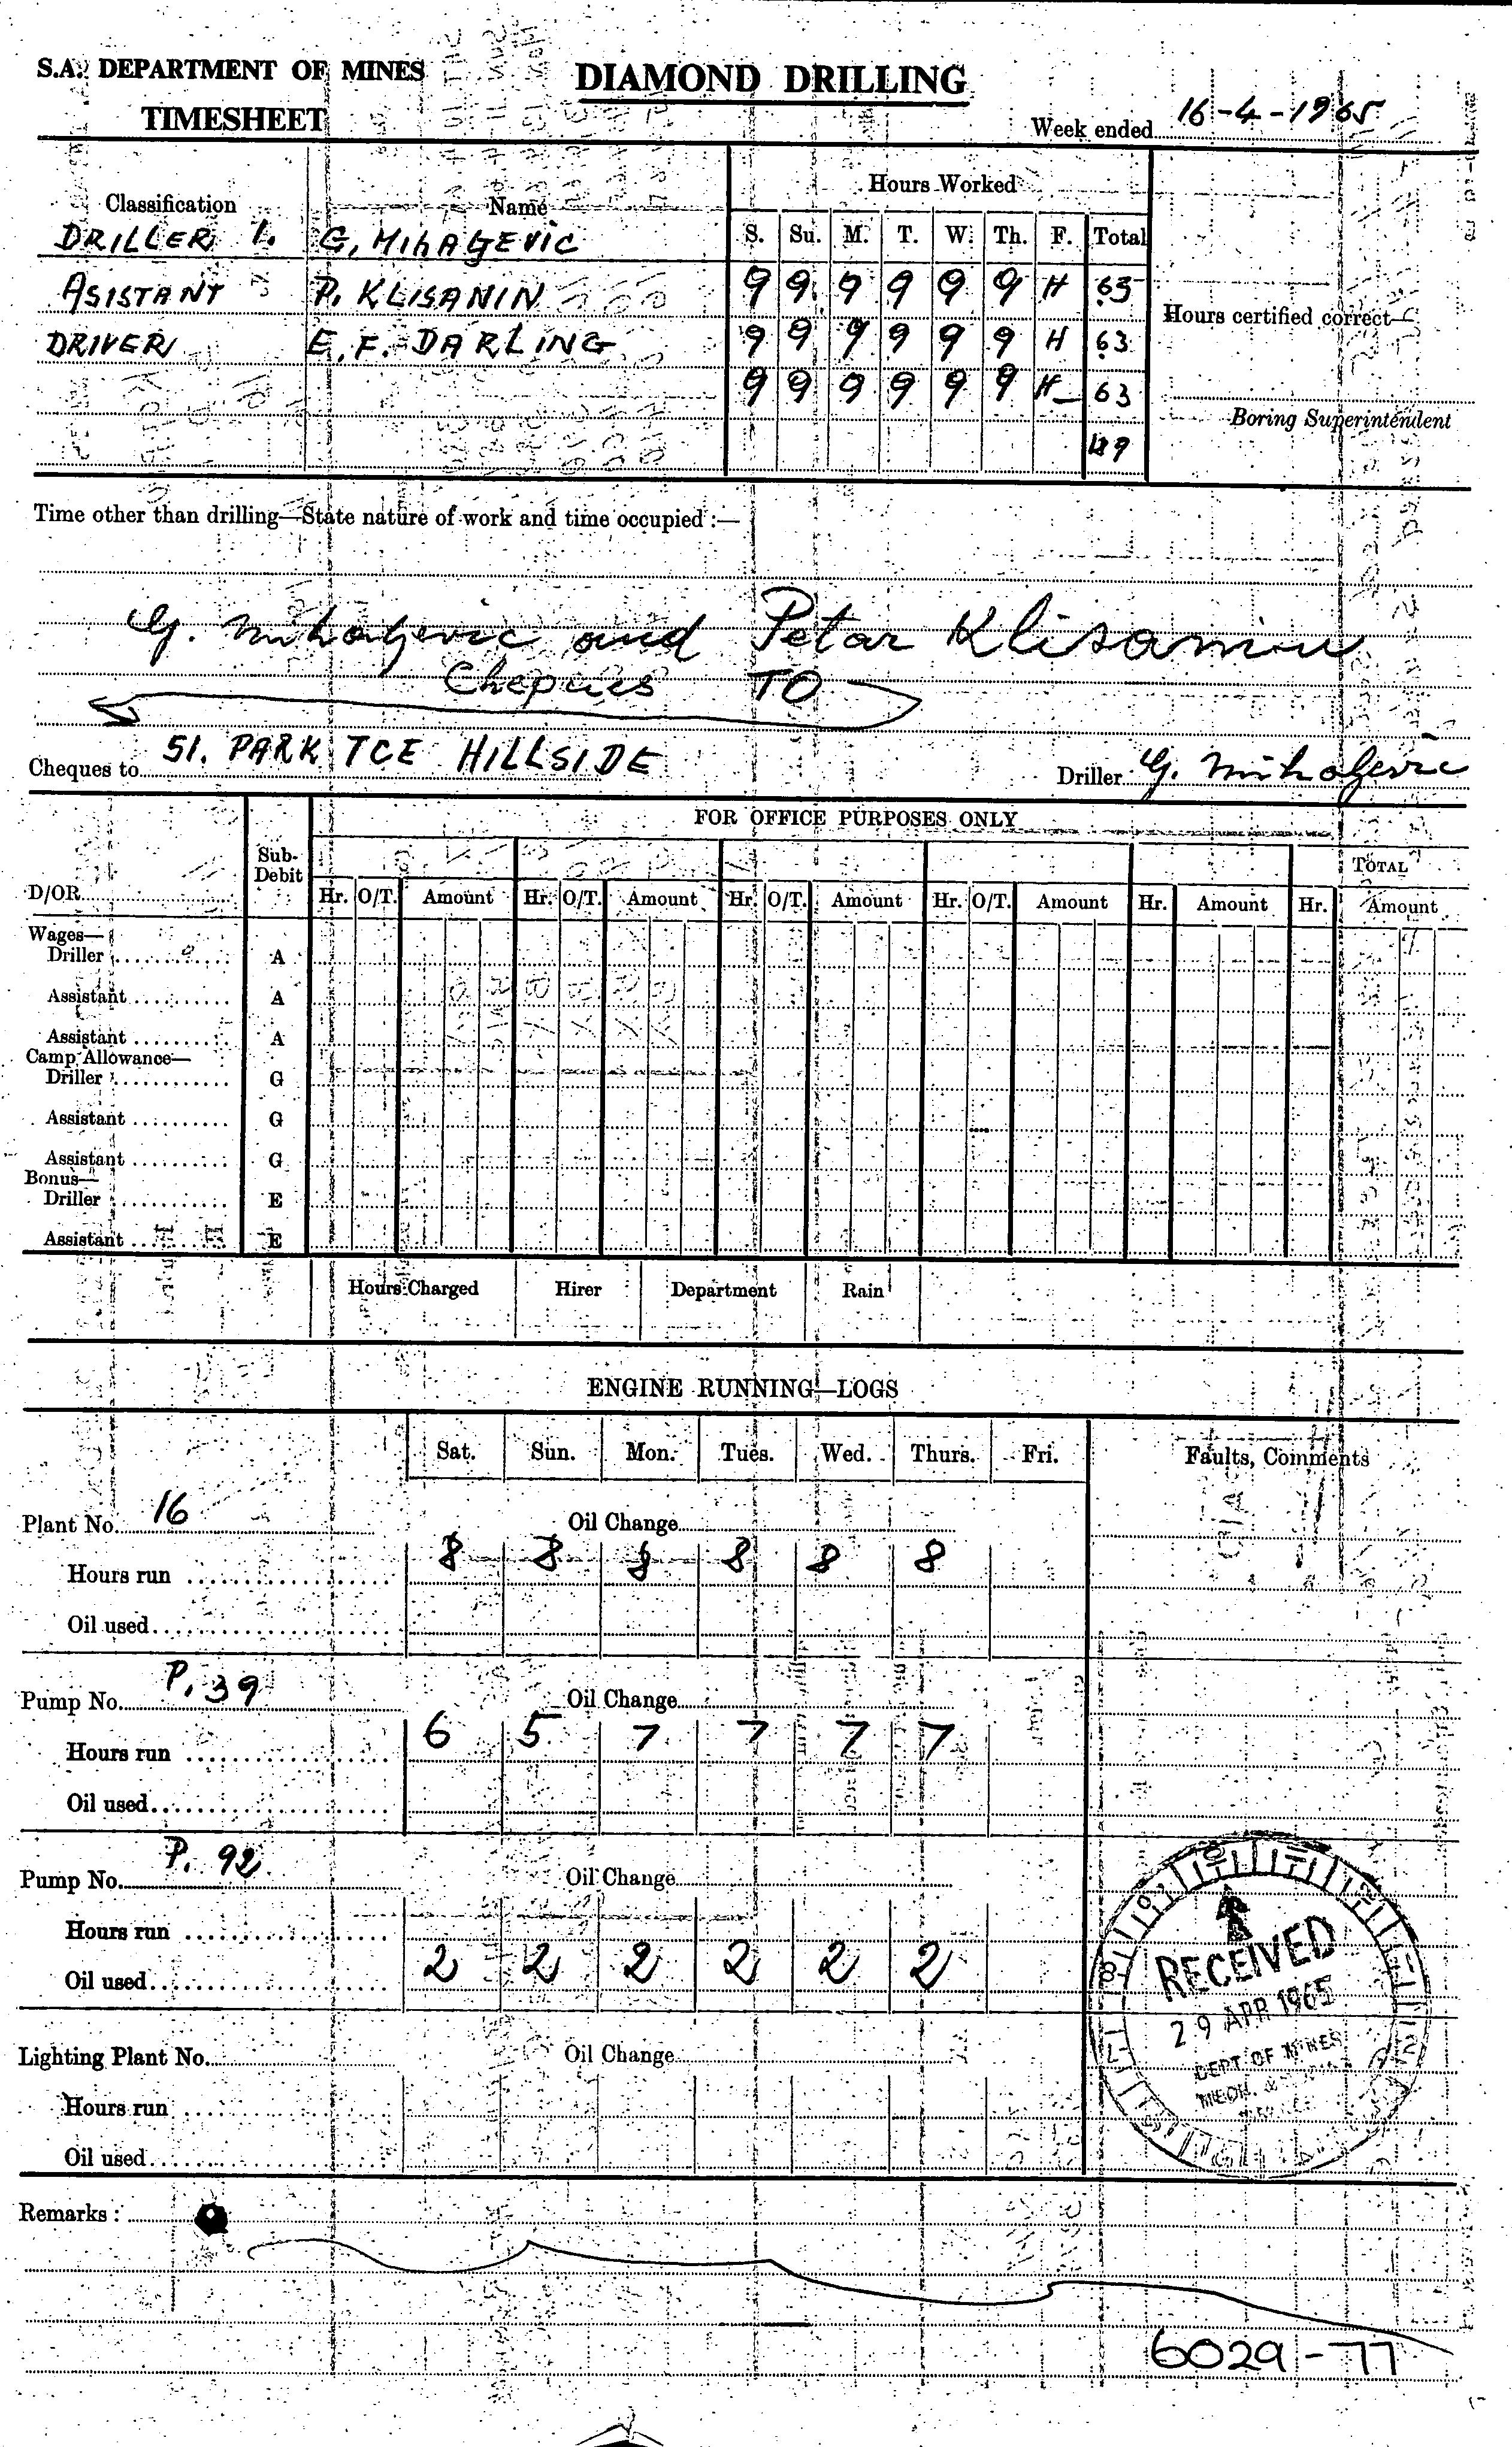 S.A. DEPARTMENT OF MINES
DIAMOND DRILLING
TIMESHEET
Week ended 16-4-1965
Hours Worked
Classification Name S. Su. M. T. W. Th. F. Total
DRILLER 1. G. MIHAGEVIC
ASISTANT P. KLISANIN 9 9 9 9 9 9 H 63
Hours certified correct—
DRIVER E. F. DARLING 9 9 9 9 9 9 H 63
9 9 9 9 9 9 H 63
Boring Superintendent
Time other than drilling—State nature of work and time occupied :—
G. Mihagevic and Petar Klisanin
Cheques TO
Cheques to 51. PARK TCE HILLSIDE Driller G. Mihagevic
FOR OFFICE PURPOSES ONLY
Sub-Debit TOTAL
D/OR Hr. O/T. Amount Hr. O/T. Amount Hr. O/T. Amount Hr. O/T. Amount Hr. Amount Hr. Amount
Wages—
Driller A
Assistant A
Assistant A
Camp Allowance—
Driller G
Assistant G
Assistant G
Bonus—
Driller E
Assistant E
Hours Charged Hirer Department Rain
ENGINE RUNNING—LOGS
Sat. Sun. Mon. Tues. Wed. Thurs. Fri. Faults, Comments
Plant No. 16 Oil Change
Hours run 8 8 8 8 8 8
Oil used
Pump No. P. 39 Oil Change
Hours run 6 5 7 7 7 7
Oil used
Pump No. P. 92 Oil Change
Hours run
Oil used 2 2 2 2 2 2
RECEIVED
29 APR 1965
DEPT OF MINES
MECH. &
Lighting Plant No. Oil Change
Hours run
Oil used
Remarks :
6029-77